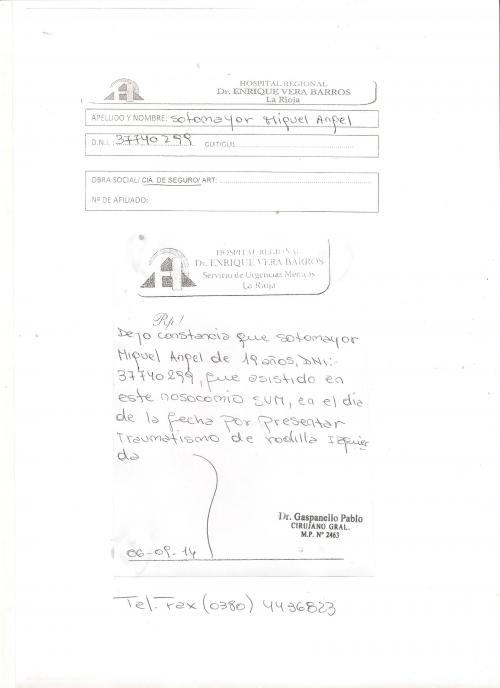 HOSPITAL REGIONAL
Dr. ENRIQUE VERA BARROS
La Rioja
APELLIDO Y NOMBRE: Sotomayor Miguel Angel
D.N.I.: 37740299 CUIT\CUIL
OBRA SOCIAL/ CIÁ. DE SEGURO/ ART:
Nº DE AFILIADO:
HOSPITAL REGIONAL
Dr. ENRIQUE VERA BARROS
Servicio de Urgencias Médicas
La Rioja
Rp/
Dejo constancia que sotomayor
Miguel Angel de 19 años, DNI:
37740299, fue asistido en
este nosocomio SUM, en el dia
de la fecha por presentar
Traumatismo de rodilla Izquier
da
Dr. Gaspanello Pablo
CIRUJANO GRAL.
M.P. Nº 2463
06-09-14
Tel. Fax (0380) 4436823